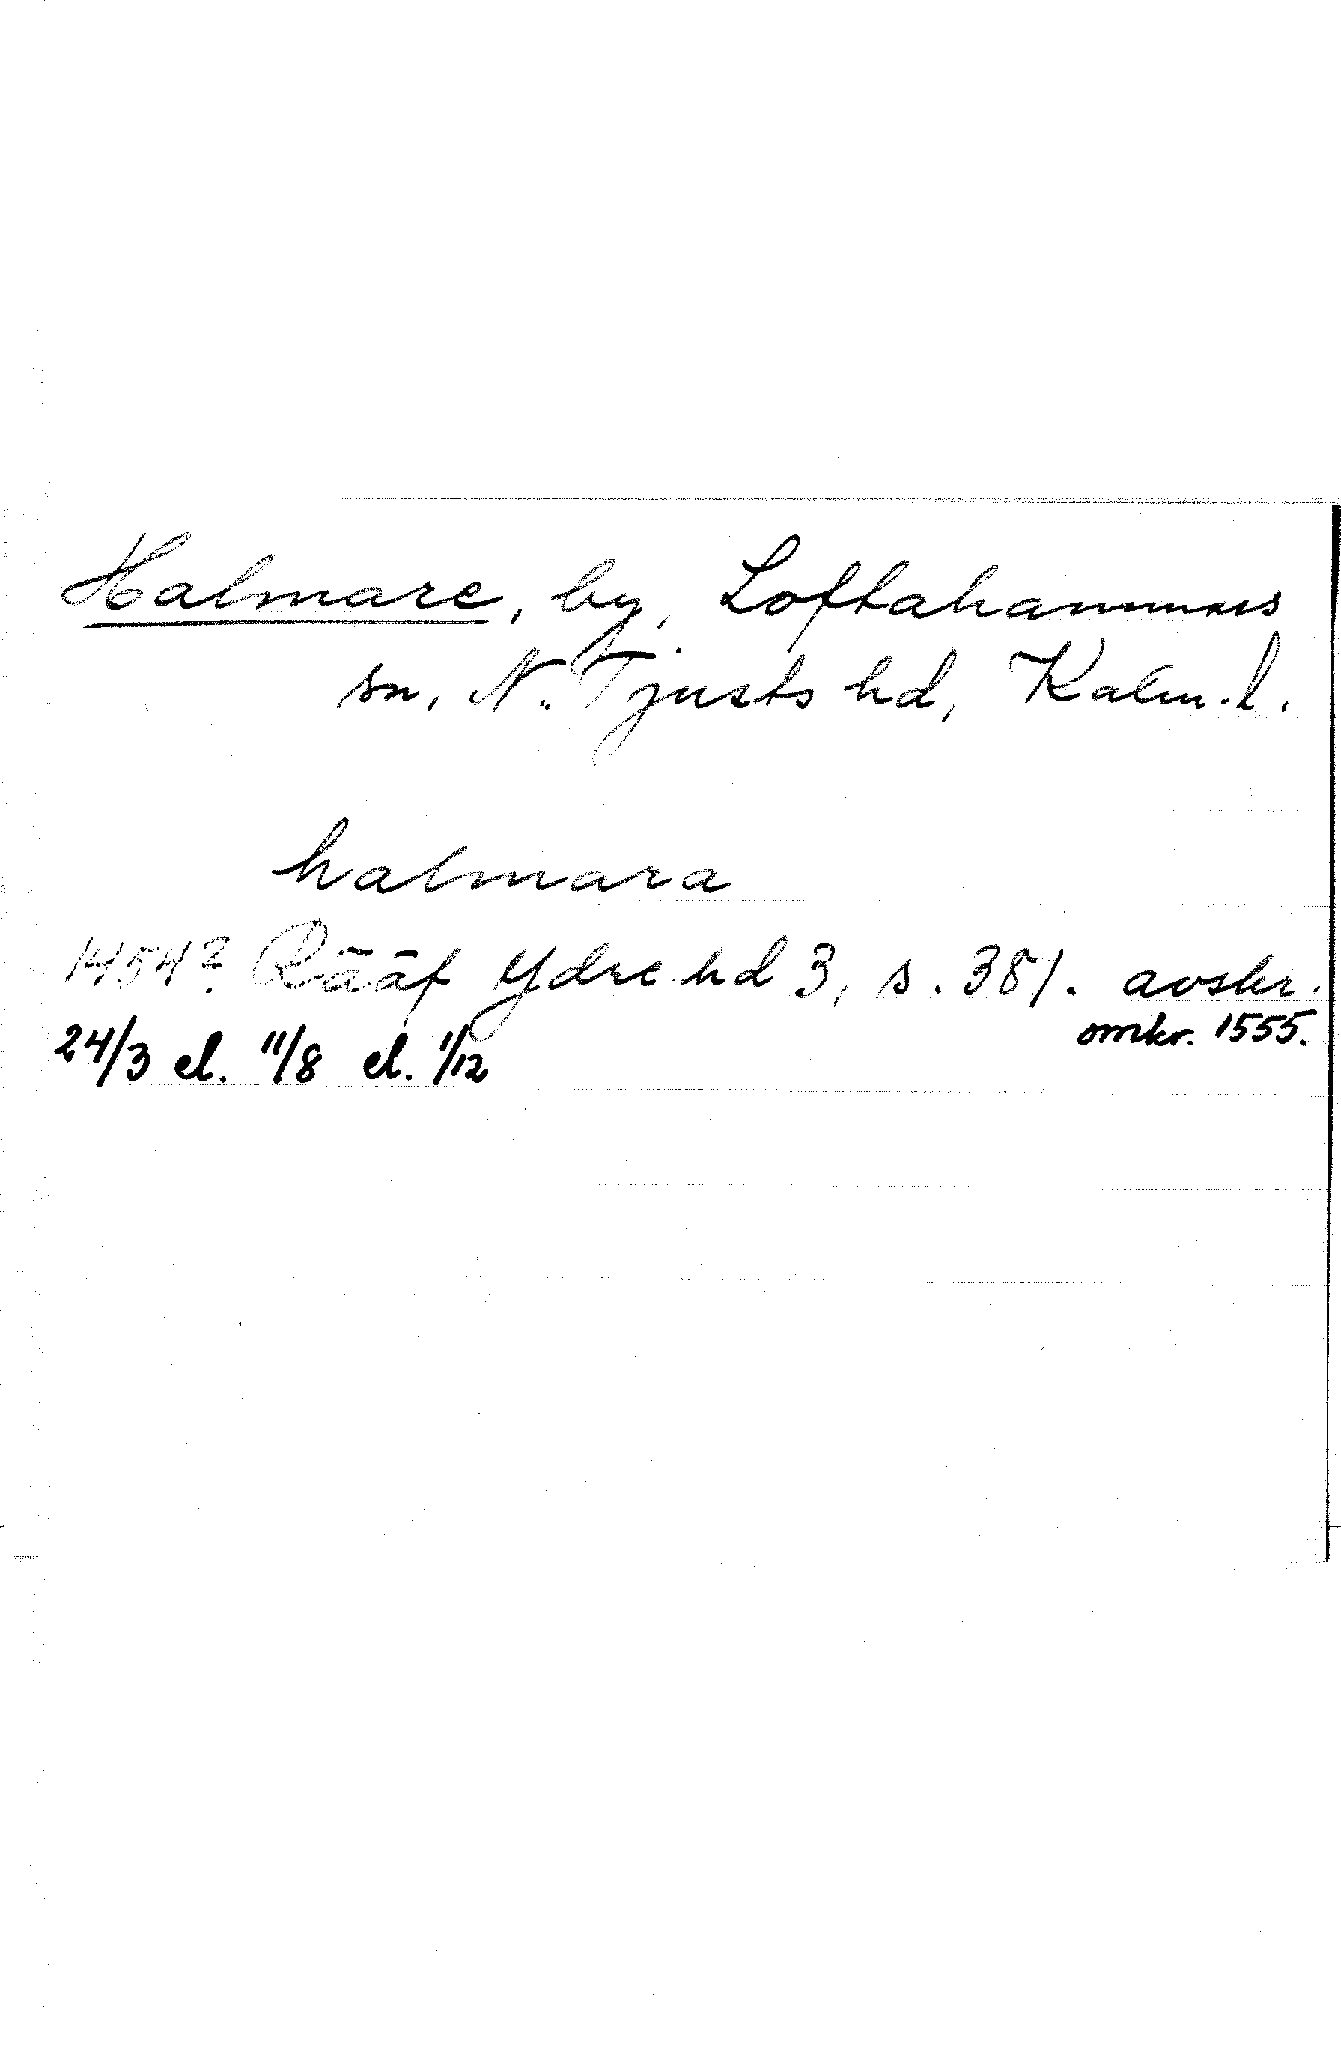 Halmare, by, Loftahammars
sn, N. Tjusts hd, Kalm. l.
halmara
1454? Rääf Ydre hd 3, s. 381. avskr.
omkr. 1555.
24/3 el. 11/8 el. 1/12